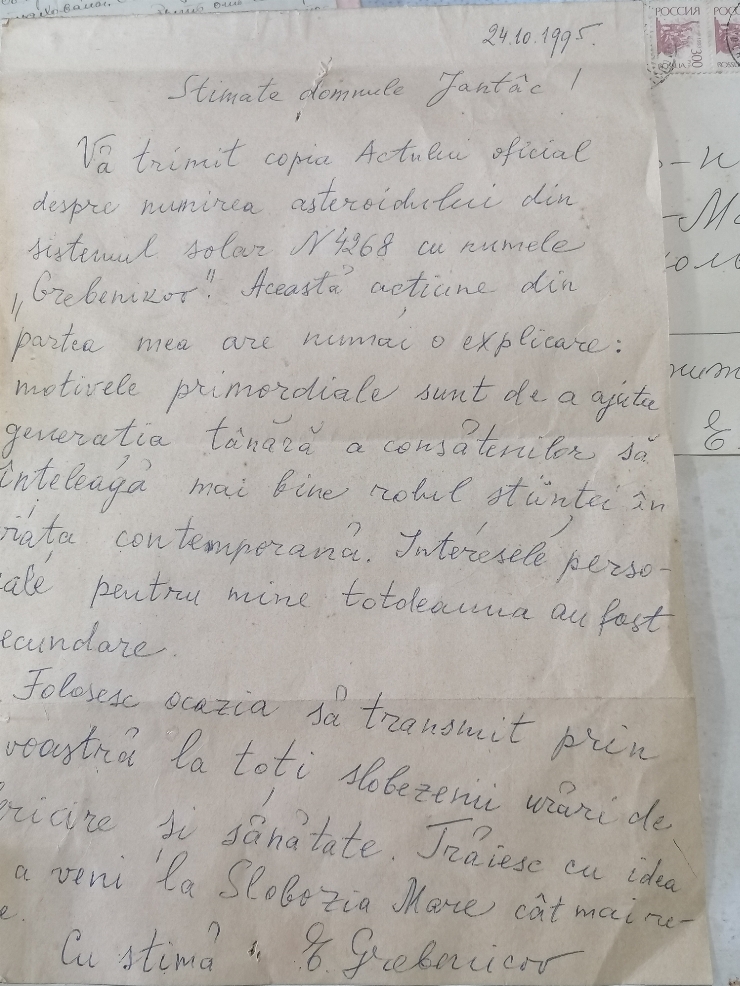 24.10.1995.
Stimate domnule Jantâc!
Vă trimit copia Actului oficial
despre numirea asteroidului din
sistemul solar N4268 cu numele
„Grebenikov". Această acțiune din
partea mea are numai o explicare:
motivele primordiale sunt de a ajuta
generația tânără a consătenilor să
înțeleagă mai bine robul științei în
viața contemporană. Interesele perso-
ale pentru mine totdeauna au fost
ecundare.
Folosesc ocazia să transmit prin
voastră la toți slobezenii urări de
ericire și sănătate. Trăiesc cu idea
a veni la Slobozia Mare cât mai re-
e.
Cu stimă E. Grebenicov
РОССИЯ
300